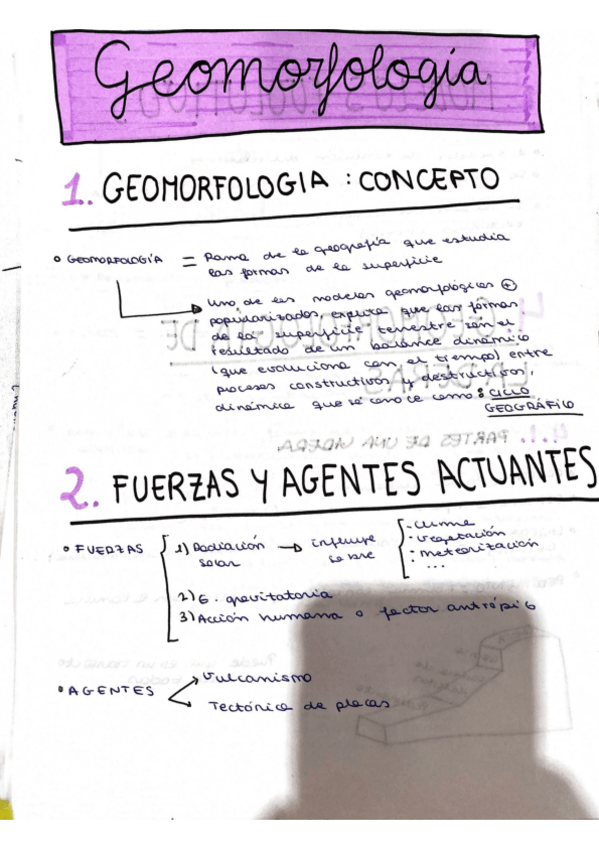 Geomorfología
1. GEOMORFOLOGIA : CONCEPTO
• GEOMORFOLOGÍA = Rama de la geografía que estudia
las formas de la superficie
Uno de los modelos geomorfológicos ⊕
popularizados, explica que las formas
de la superficie terrestre son el
resultado de un balance dinámico
(que evoluciona con el tiempo) entre
procesos constructivos y destructivos,
dinámica que se conoce como: CICLO
GEOGRÁFICO
2. FUERZAS Y AGENTES ACTUANTES
• FUERZAS
1) Radiación solar → influye sobre
- clima
- vegetación
- meteorización
- ...
2) E. gravitatoria
3) Acción humana o factor antrópico
• AGENTES
Vulcanismo
Tectónica de placas